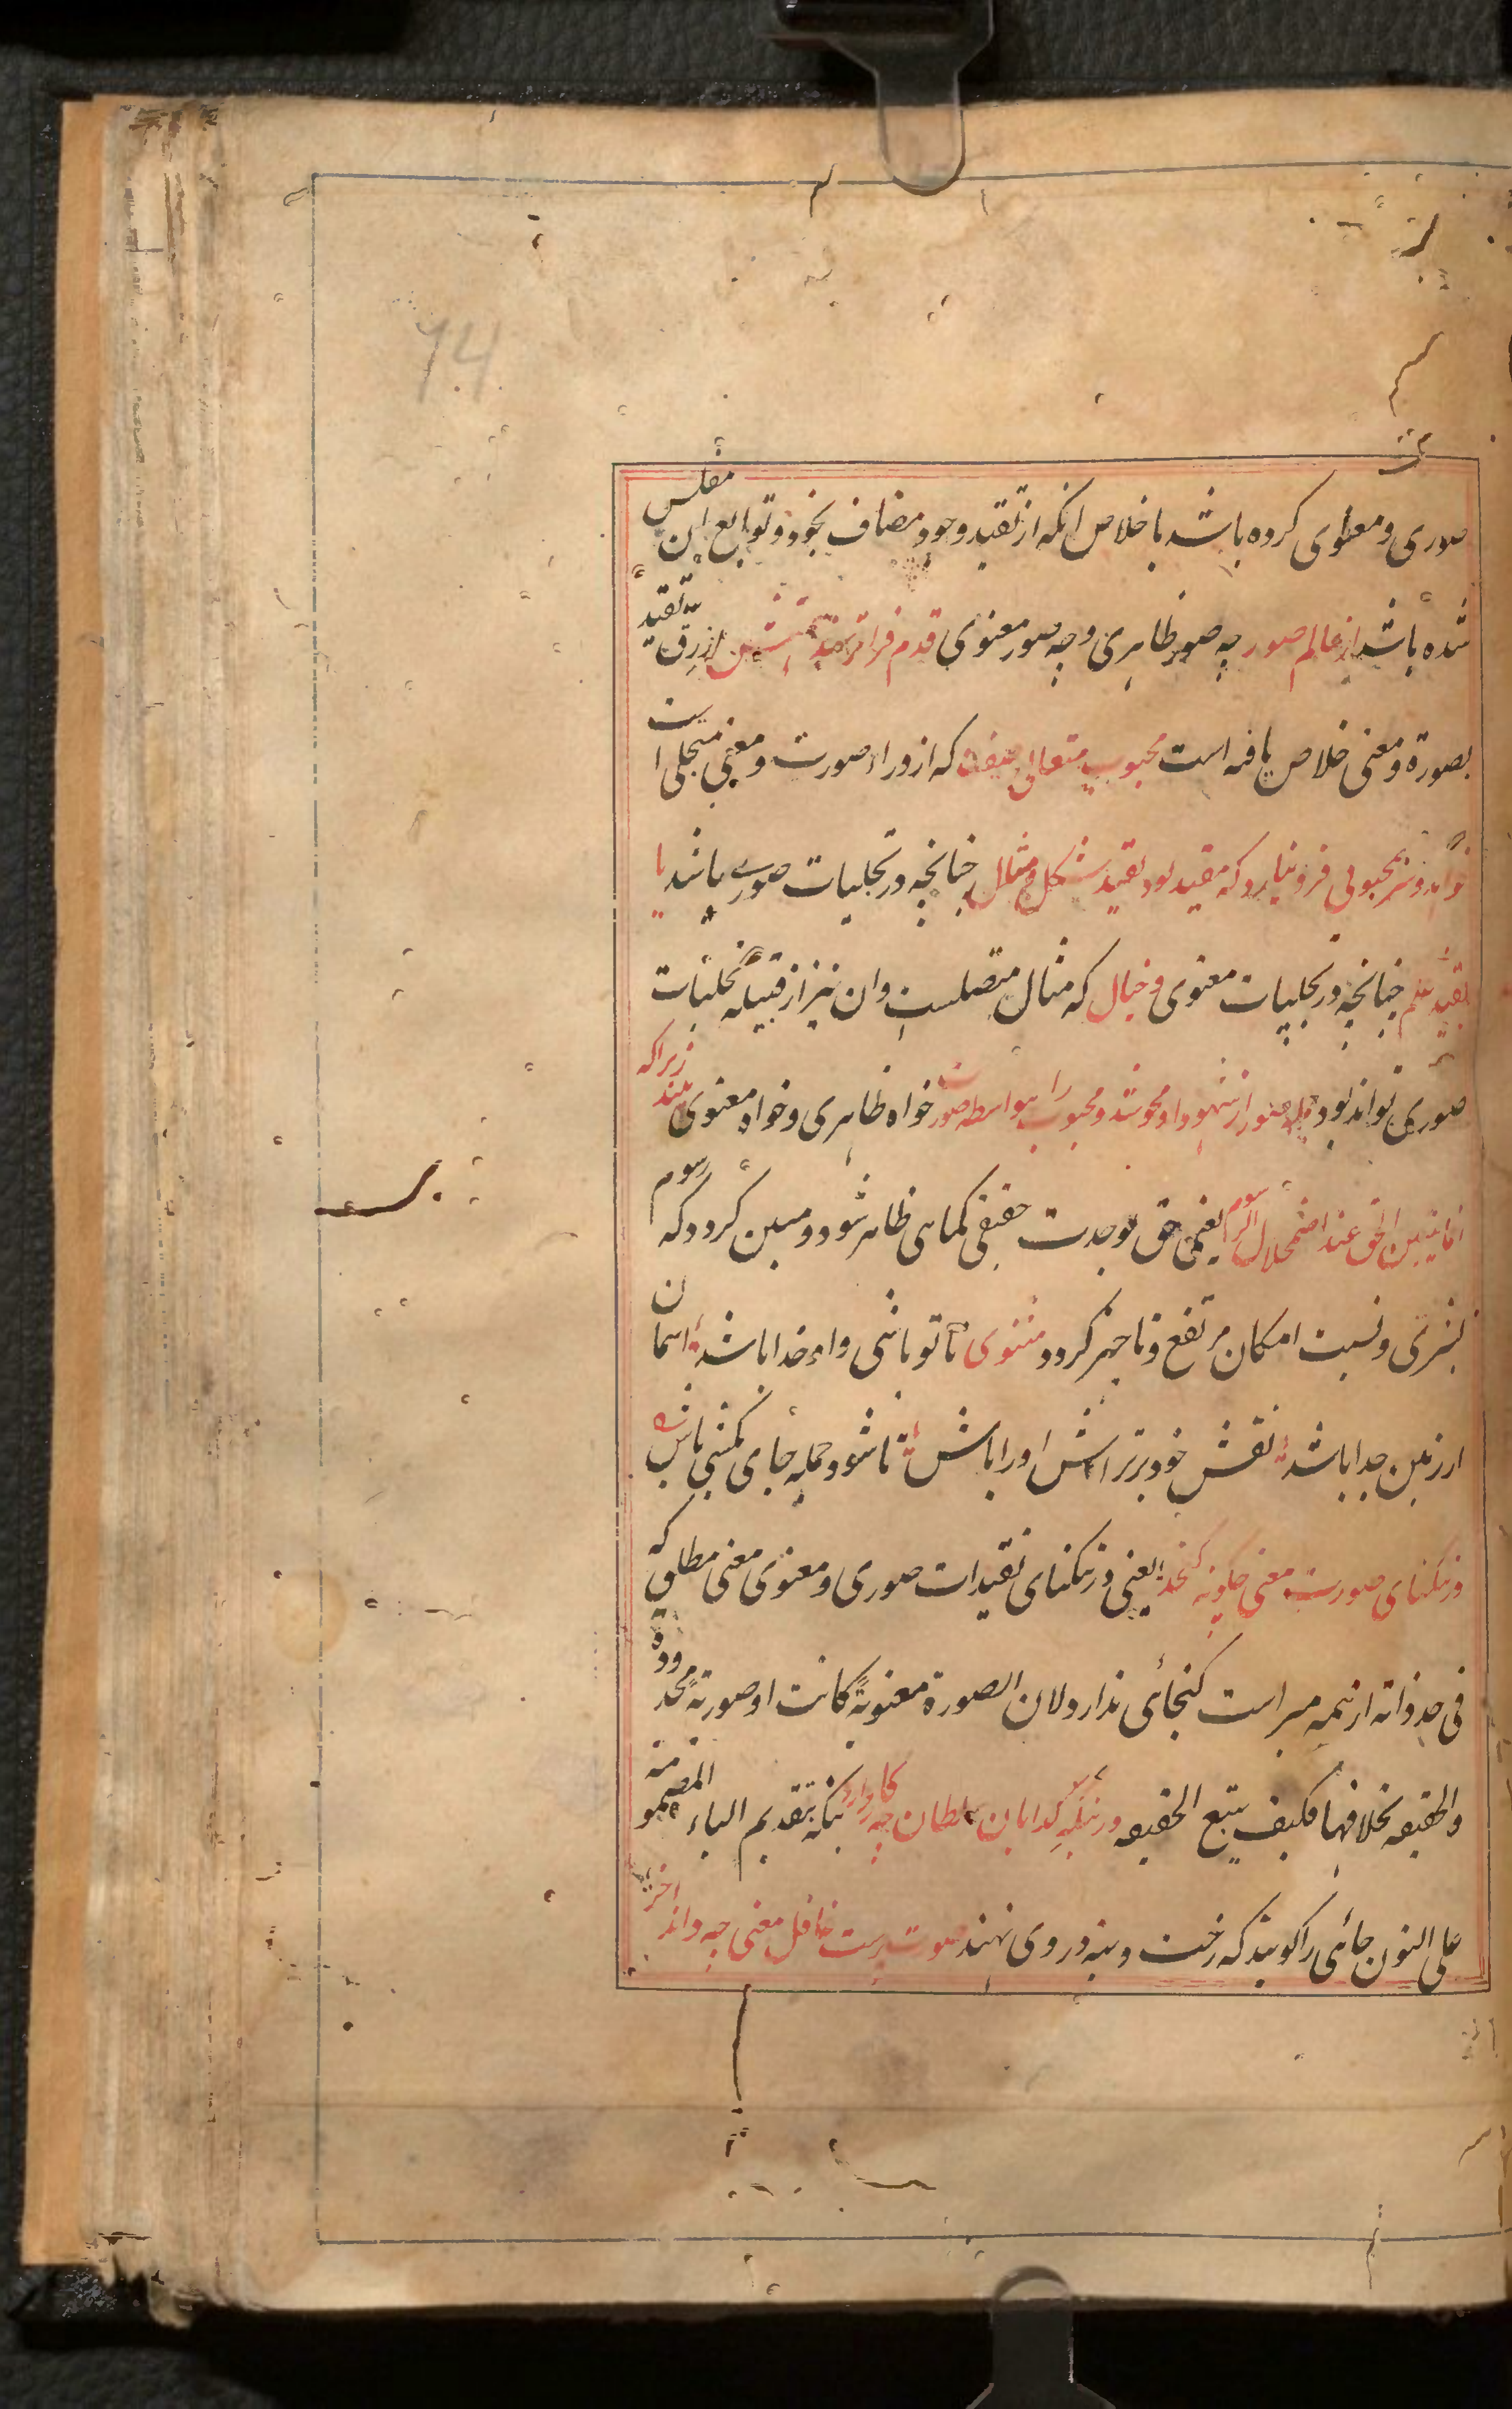 74
صوری و معنوی کرده باشد با خلاص انکه از تقید وجود مضاف بخود و توابع این مفلس
شده باشد از عالم صور چه صور ظاهری و چه صور معنوی قدم فراتر نهد از رق تقید
بصورة و معنی خلاص یافته است محبوب متعالی صفت که از وراء صورت و معنی متجلی است
خواهد و سر بمحبوبی فرو نیارد که مقید بود بقید شکل و مثال چنانچه در تجلیات صوری باشد یا
بقید علم چنانچه در تجلیات معنوی و خیال که مثال متصلست و ان نیز از قبیله تجلیات
صوری تواند بود صور از شهود او محو شد و محبوب را بیواسطه صورت خواه ظاهری و خواه معنوی بیند زیرا که
انما یتبین الحق عند اضمحلال الرسوم یعنی حق بوحدت حقیقی کماهی ظاهر شود و مبین کردد که رسوم
بشری و نسبت امکان مرتفع و ناچیز کردد مثنوی تا تو باشی واء خدا باشد اسمان
از زمین جدا باشد نقش خود برتراش او را باش تا شود جمله جای کمشی باش
در تنکنای صورت معنی چکونه کنجد یعنی در تنکنای تقیدات صوری و معنوی معنی مطلق که
فی حد ذاته از همه مبراست کنجائی ندارد لان الصورة معنویة کانت او صوریة محدودة
والحقیقه بخلافها فکیف یتبع الحقیقه در بنکه کدایان سلطان چه کار دارد بنکه بتقدیم الباء المضمومة
علی النون جائی را کویند که رخت و بنه در وی نهند صورت پرست غافل معنی چه داند اخر